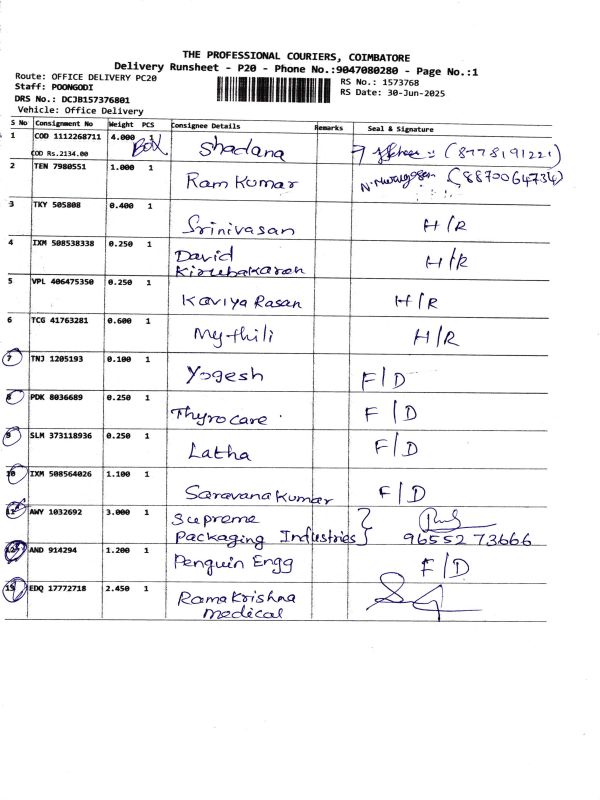 THE PROFESSIONAL COURIERS, COIMBATORE
Delivery Runsheet - P20 - Phone No.:9047080280 - Page No.:1
Route: OFFICE DELIVERY PC20
Staff: POONGODI
DRS No.: DCJB157376801
Vehicle: Office Delivery
RS No.: 1573768
RS Date: 30-Jun-2025
S No Consignment No Weight PCS Consignee Details Remarks Seal & Signature
1 COD 1112268711 4.000 1 Shadana (8778191221)
COD Rs.2134.00 BOX
2 TEN 7980551 1.000 1 Ram Kumar (8870064734)
3 TKY 505808 0.400 1 Srinivasan H/R
4 IXM 508538338 0.250 1 David Kirubakaran H/R
5 VPL 406475350 0.250 1 Kaviya Rasan H/R
6 TCG 41763281 0.600 1 Mythili H/R
7 TNJ 1205193 0.100 1 Yogesh F/D
8 PDK 8036689 0.250 1 Thyrocare F/D
9 SLM 373118936 0.250 1 Latha F/D
10 IXM 508564026 1.100 1 Saravana Kumar F/D
11 AWY 1032692 3.000 1 Supreme
Packaging Industries 9655273666
12 AND 914294 1.200 1 Penguin Engg F/D
13 EDQ 17772718 2.450 1 Ramakrishna
medical